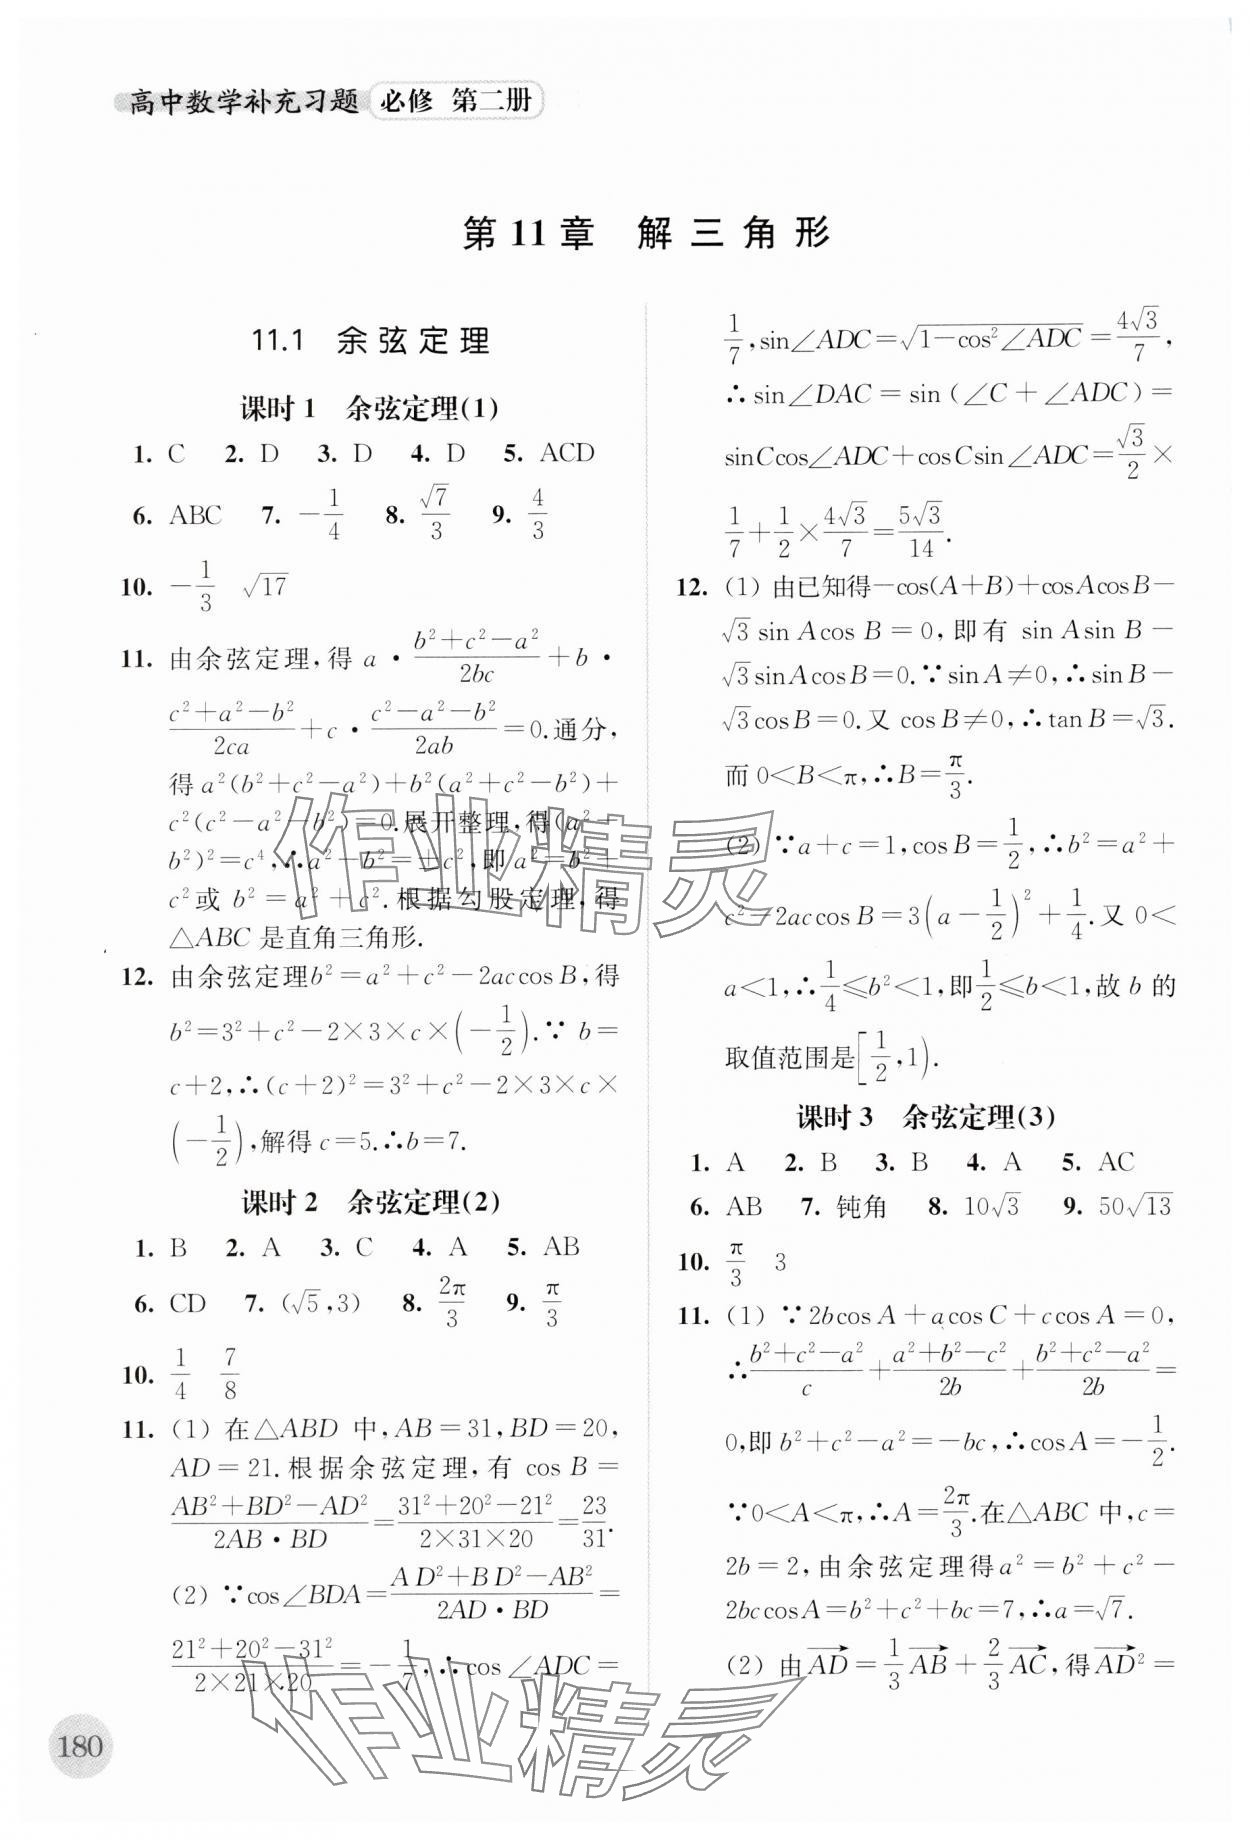 高中数学补充习题 必修 第二册
第 11 章 解三角形
11.1 余弦定理
课时 1 余弦定理(1)
1. C 2. D 3. D 4. D 5. ACD
6. ABC 7. -1/4 8. √7/3 9. 4/3
10. -1/3 √17
11. 由余弦定理,得 a·(b²+c²-a²)/2bc+b·
(c²+a²-b²)/2ca+c·(c²-a²-b²)/2ab=0.通分,
得 a²(b²+c²-a²)+b²(a²+c²-b²)+
c²(c²-a²-b²)=0.展开整理,得(a²-
b²)²=c⁴,∴a²-b²=±c²,即 a²=b²+
c²或 b²=a²+c².根据勾股定理,得
△ABC 是直角三角形.
12. 由余弦定理b²=a²+c²-2accosB,得
b²=3²+c²-2×3×c×(-1/2).∵ b=
c+2,∴(c+2)²=3²+c²-2×3×c×
(-1/2),解得 c=5.∴b=7.
课时 2 余弦定理(2)
1. B 2. A 3. C 4. A 5. AB
6. CD 7. (√5,3) 8. 2π/3 9. π/3
10. 1/4 7/8
11. (1) 在△ABD 中,AB=31,BD=20,
AD=21.根据余弦定理,有 cosB=
(AB²+BD²-AD²)/(2AB·BD)=(31²+20²-21²)/(2×31×20)=23/31.
(2) ∵cos∠BDA=(AD²+BD²-AB²)/(2AD·BD)=
(21²+20²-31²)/(2×21×20)=-1/7,∴cos∠ADC=
1/7,sin∠ADC=√(1-cos²∠ADC)=4√3/7,
∴sin∠DAC=sin(∠C+∠ADC)=
sinCcos∠ADC+cosCsin∠ADC=√3/2×
1/7+1/2×4√3/7=5√3/14.
12. (1) 由已知得-cos(A+B)+cosAcosB-
√3sinAcosB=0,即有 sinAsinB-
√3sinAcosB=0.∵sinA≠0,∴sinB-
√3cosB=0.又 cosB≠0,∴tanB=√3.
而 0<B<π,∴B=π/3.
(2) ∵a+c=1,cosB=1/2,∴b²=a²+
c²-2accosB=3(a-1/2)²+1/4.又 0<
a<1,∴1/4≤b²<1,即1/2≤b<1,故 b 的
取值范围是[1/2,1).
课时 3 余弦定理(3)
1. A 2. B 3. B 4. A 5. AC
6. AB 7. 钝角 8. 10√3 9. 50√13
10. π/3 3
11. (1) ∵2bcosA+acosC+ccosA=0,
∴(b²+c²-a²)/c+(a²+b²-c²)/2b+(b²+c²-a²)/2b=
0,即 b²+c²-a²=-bc,∴cosA=-1/2.
∵0<A<π,∴A=2π/3.在△ABC 中,c=
2b=2,由余弦定理得 a²=b²+c²-
2bccosA=b²+c²+bc=7,∴a=√7.
(2) 由AD→=1/3AB→+2/3AC→,得AD→²=
180
作业精灵
作业精灵